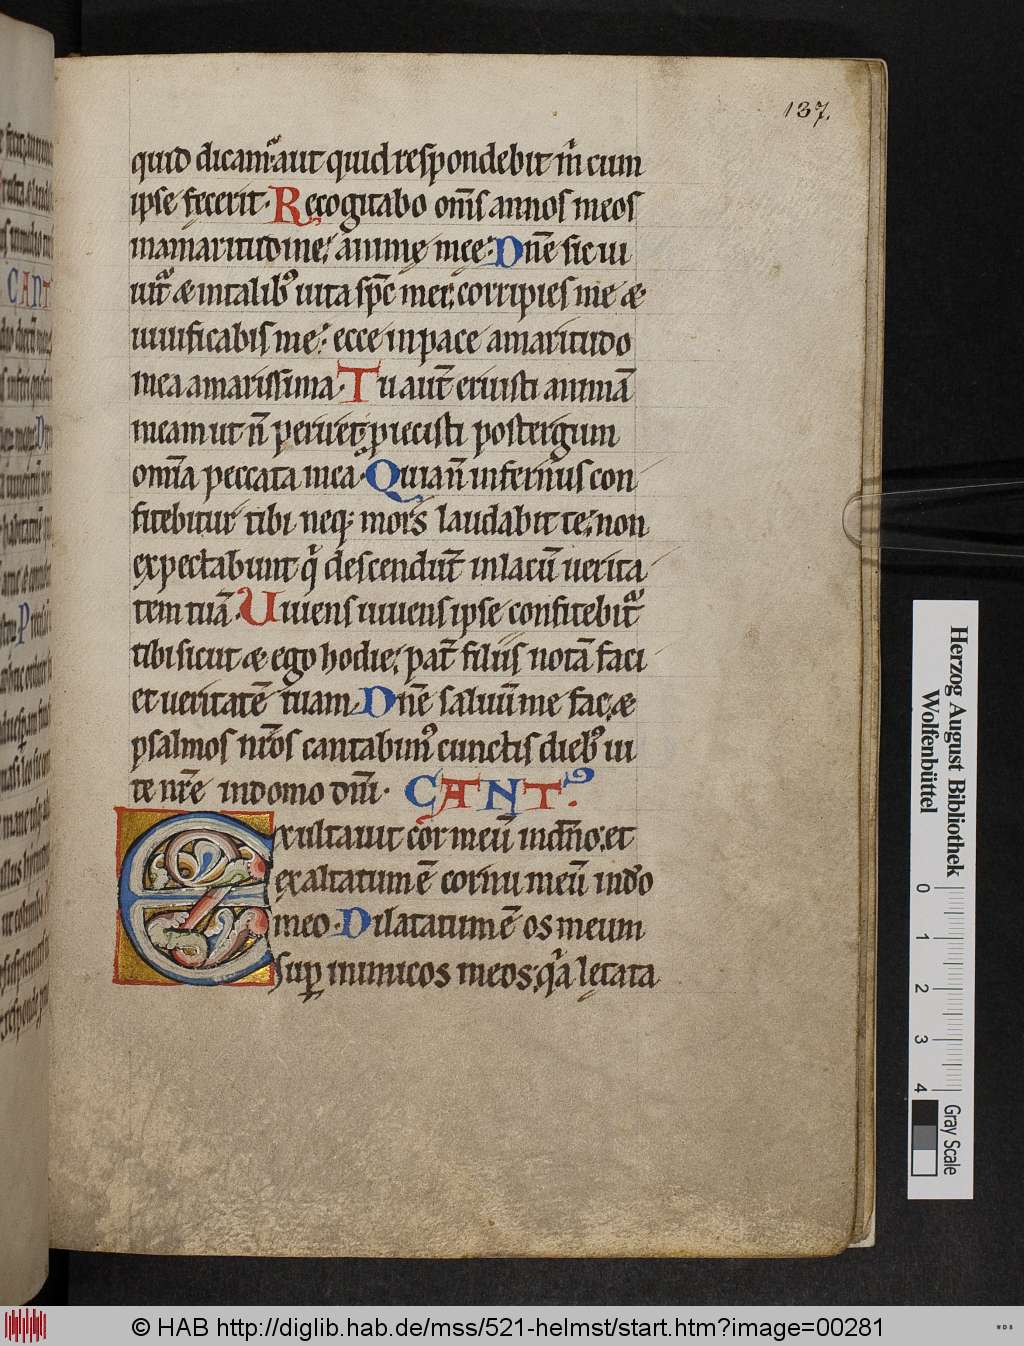 137.
quid dicam? aut quid respondebit m̄ cum
ipse fecerit. Recogitabo om̄s annos meos
inamaritudine; animę meę. Dn̄e sic ui
uit᷑ & intalib᷒ uita sp̄c mei; corripies me &
uiuificabis me; ecce inpace amaritudo
mea amarissima. Tu aut̄ eruisti animā
meam ut n̄ periret; piecisti postergum
om̄ia peccata mea. Quia n̄ infernus con
fitebitur tibi neq; mors laudabit te; non
expectabunt q̄ descendūt inlacū uerita
tem tuā. Uiuens uiuens ipse confitebit᷑
tibi sicut & ego hodie; pat̄ filiis notā faci
et ueritatē tuam. Dn̄e saluū me fac; &
psalmos nr̄os cantabim᷒ cunctis dieb᷒ ui
te nr̄e indomo dn̄i. CANT᷒.
Exultauit cor meū indn̄o; et
exaltatum ē cornu meū indo
meo. Dilatatum ē os meum
sup̱ inimicos meos; q̄a lętata
CANT
Herzog August Bibliothek
Wolfenbüttel
0 1 2 3 4
Gray Scale
© HAB http://diglib.hab.de/mss/521-helmst/start.htm?image=00281